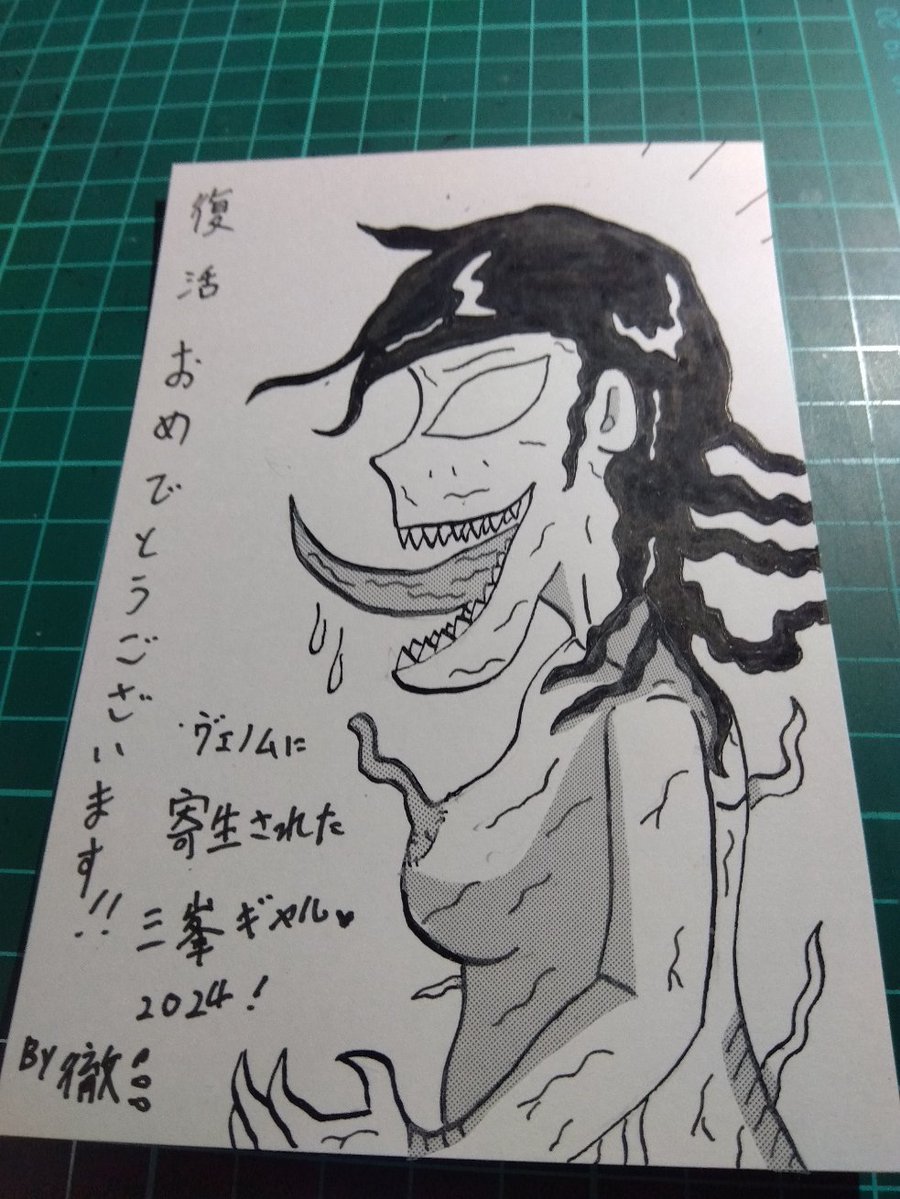 復活おめでとうございます!!
ヴェノムに
寄生された
三峯ギャル♥
2024!
BY 徹